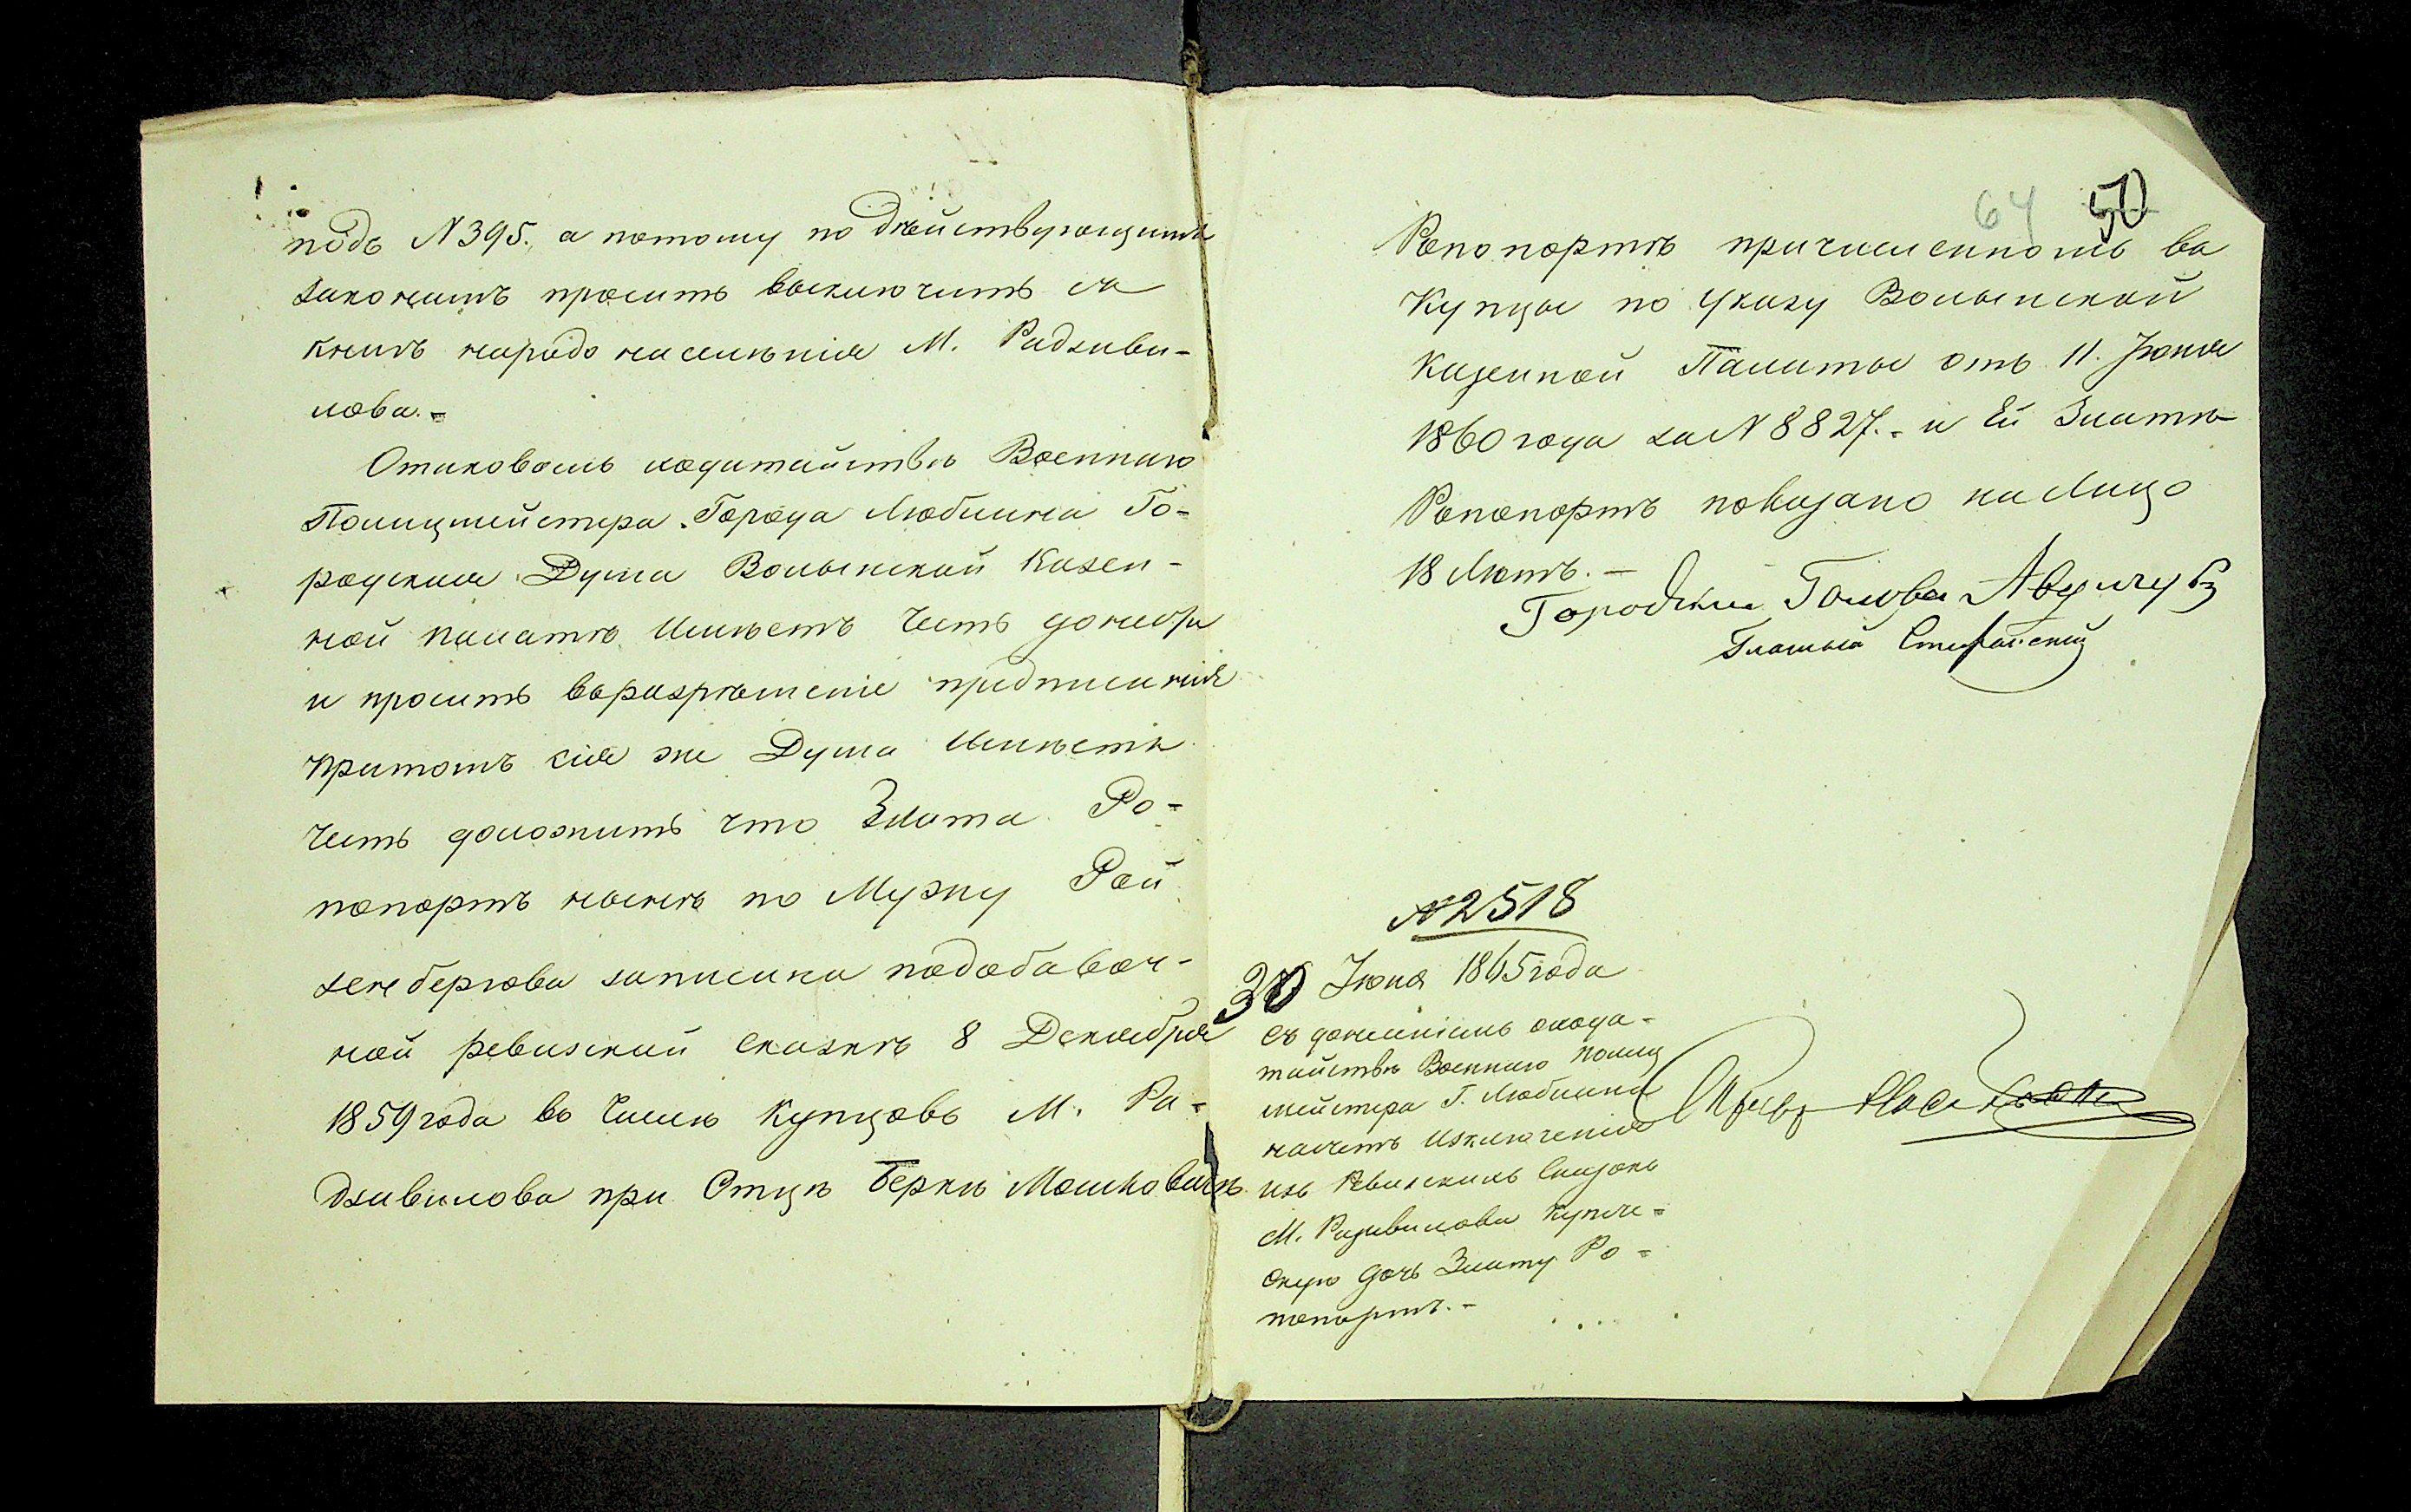 подъ N 395. а потому по дѣйствующимъ
законамъ просить выключить съ
книгъ народонаселенія М. Радзиви-
лова.-
Отаковомъ ходатайствѣ Военнаго
Полицмейстера Города Люблина Го-
родская Дума Волынской Казен-
ной палатѣ Имѣетъ Честь донести
и просить въразрѣшеніе предписанія
притомъ сія же Дума Имѣетъ
Честь доложить что Злата Ро-
попортъ нынѣ по Мужу Рой
зенбергова записанаподобавоч-
ной ревизской сказкѣ 8 Декабря
1859 года въ Числѣ Купцовъ М. Ра-
дзивилова при Отцѣ Беркѣ Мошковичѣ
64 50
Ропопортѣ причисленномъ въ
Купцы по Указу Волынской
Казенной Палаты отъ 11. Іюня
1860 года за N 8827.- и Ей Златѣ
Ропопортъ показано на Лицо
18 Лѣтъ.-
Городской Голова
Гласный
N 2518
30 Іюня 1865 года
Съ донесеніемъ охода-
тайствѣ Военнаго полиц
мейстера Г. Люблина
насчетъ Изключенія
изъ Ревизскихъ Сказокъ
М. Радзивилова Купече-
скую дочь Злату Ро-
попортъ.-